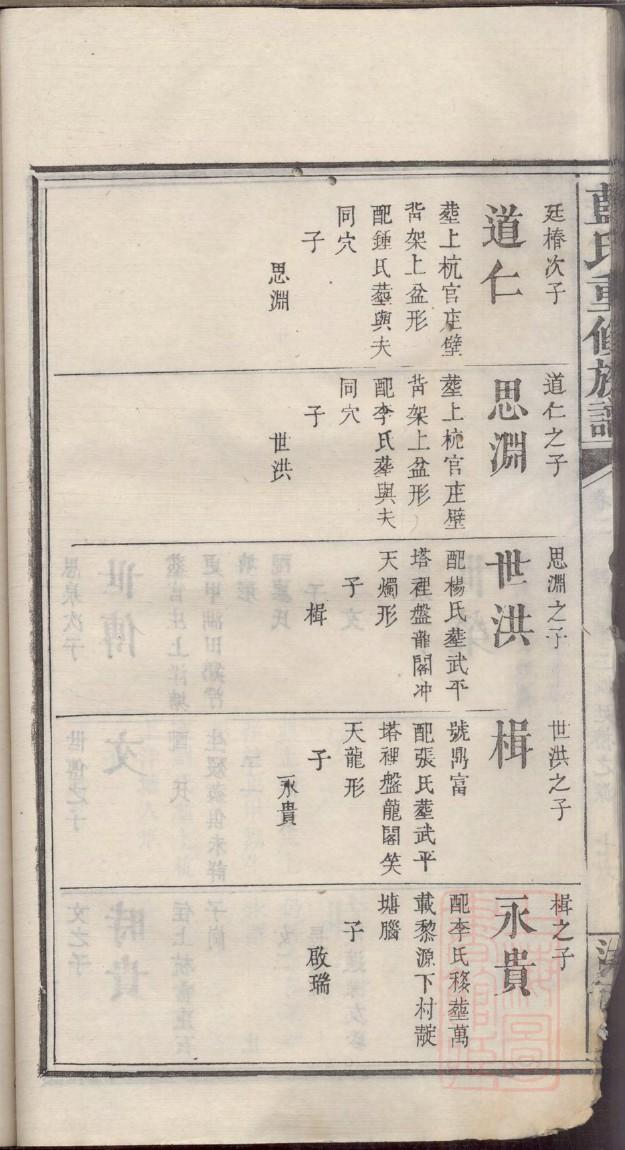 藍氏重修族譜
廷椿次子
道仁
塟上杭官庄壁
背架上盆形
配鍾氏塟與夫
同穴
子
思淵
道仁之子
思淵
塟上杭官庄壁
背架上盆形
配李氏塟與夫
同穴
子
世洪
思淵之子
世洪
配楊氏塟武平
塔裡盤龍閣冲
天燭形
子
楫
世洪之子
楫
號鼎富
配張氏塟武平
塔裡盤龍閣笑
天龍形
子
永貴
楫之子
永貴
配李氏移塟萬
載黎源下村靛
塘腦
子
啟瑞